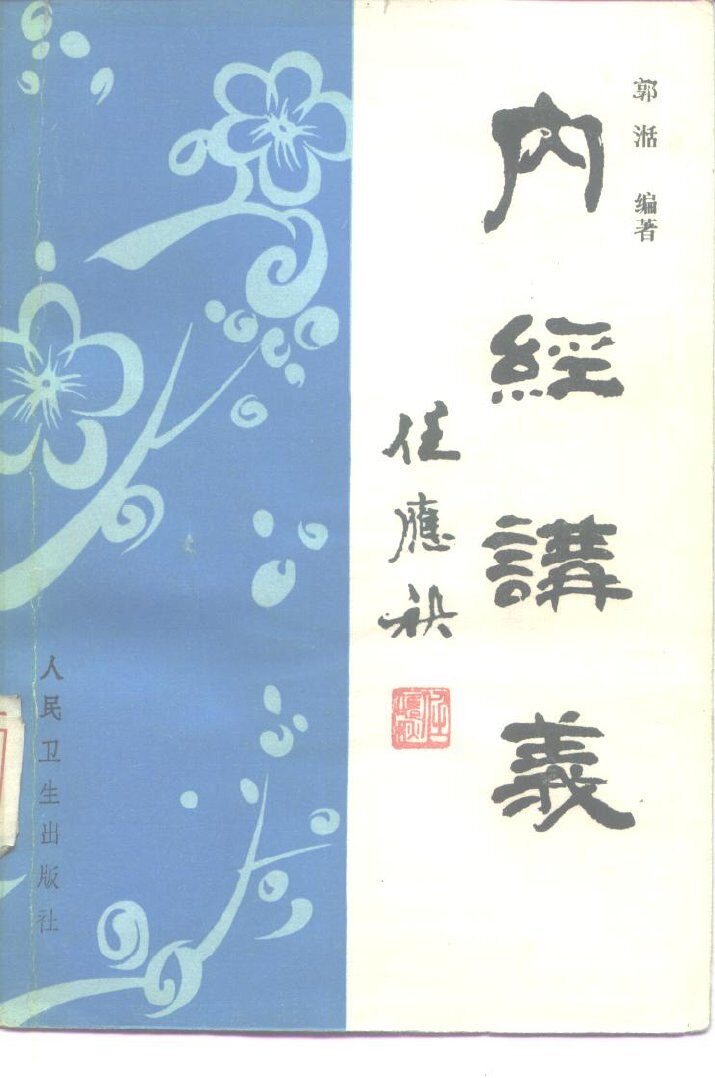 郭湉 编著
内經講義
任應秋
人民卫生出版社